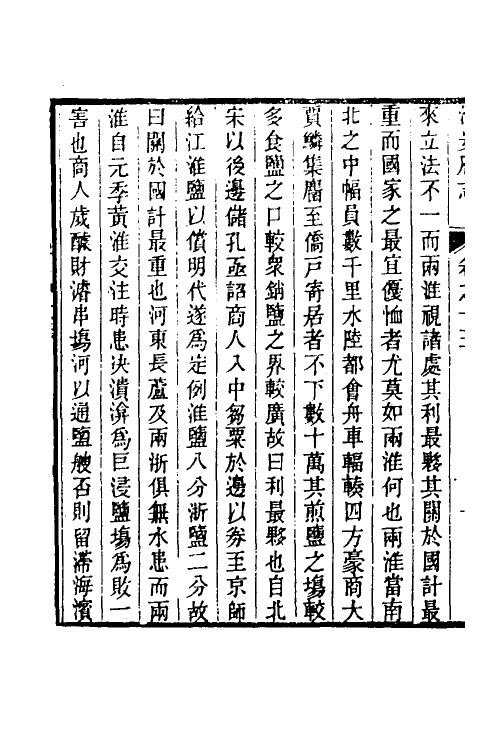 來立法不一而兩淮視諸處其利最夥其關於國計最
重而國家之最宜優恤者尤莫如兩淮何也兩淮當南
北之中幅員數千里水陸都會舟車輻輳四方豪商大
賈鱗集麕至僑戶寄居者不下數十萬其煎鹽之塲較
多食鹽之口較衆銷鹽之界較廣故曰利最夥也自北
宋以後邊儲孔亟詔商人入中芻粟於邊以券至京師
給江淮鹽以償明代遂為定例淮鹽八分浙鹽二分故
曰關於國計最重也河東長蘆及兩浙俱無水患而兩
淮自元季黃淮交注時患決潰渰為巨浸鹽塲為敗一
害也商人歲醵財濬串塲河以通鹽艘否則留滯海濱